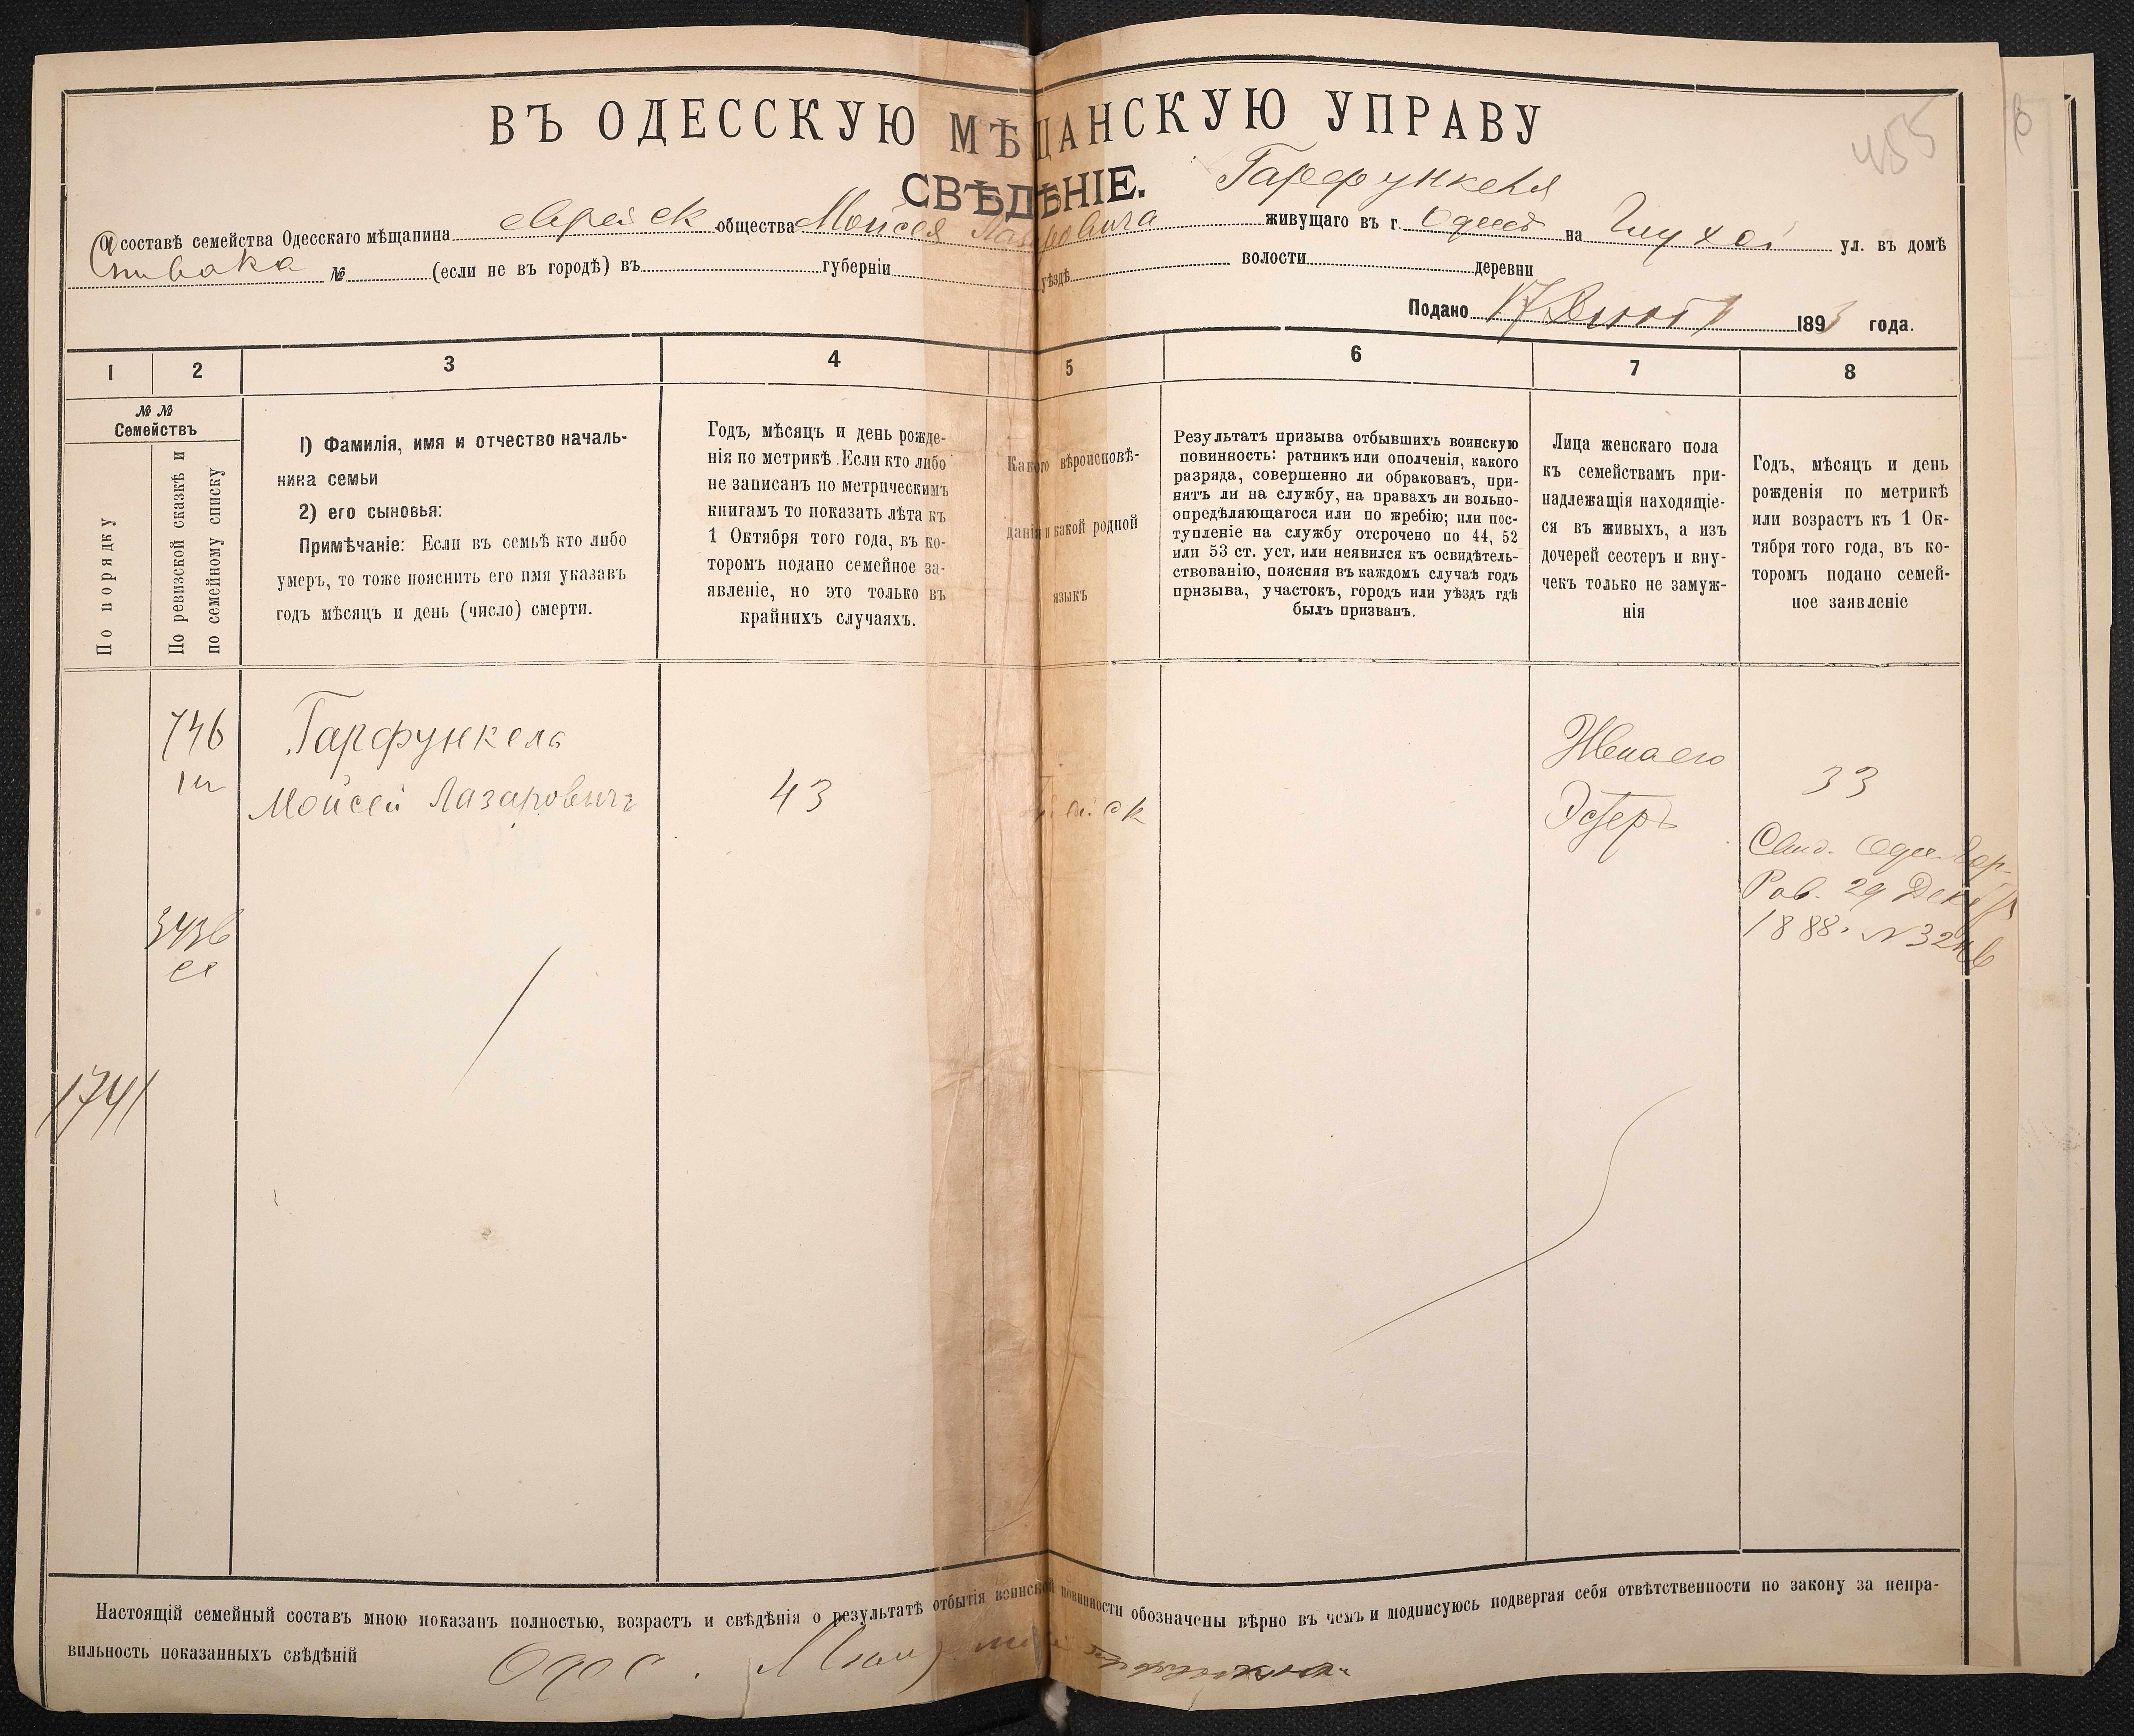 ВЪ ОДЕССКУЮ МѢЩАНСКУЮ УПРАВУ
455
СВѢДѢНІЕ.
Гарфункеля
О составѣ семейства Одесскаго мѣщанина еврейск общества Мойсея Лазаровича живущаго въ г. Одессѣ на Глухой ул. въ домѣ
Спивака № (если не въ городѣ) въ губерніи уѣздѣ волости деревни
Подано 17 1893 года.
1 2 3 4 5 6 7 8
№ №
Семействъ
По порядку
По ревизской сказкѣ и
по семейному списку
1) Фамилія, имя и отчество началь-
ника семьи
2) его сыновья:
Примѣчаніе: Если въ семьѣ кто либо
умеръ, то тоже пояснить его имя указавъ
годъ мѣсяцъ и день (число) смерти.
Годъ, мѣсяцъ и день рожде-
нія по метрикѣ. Если кто либо
не записанъ по метрическимъ
книгамъ то показать лѣта къ
1 Октября того года, въ ко-
торомъ подано семейное за-
явленіе, но это только въ
крайнихъ случаяхъ.
Какого вѣроисповѣ-
данія и какой родной
языкъ
Результатъ призыва отбывшихъ воинскую
повинность: ратникъ или ополченія, какого
разряда, совершенно ли обракованъ, при-
нятъ ли на службу, на правахъ ли вольно-
опредѣляющагося или по жребію; или пос-
тупленіе на службу отсрочено по 44, 52
или 53 ст. уст. или неявился къ освидѣтель-
ствованію, поясняя въ каждомъ случаѣ годъ
призыва, участокъ, городъ или уѣздъ гдѣ
былъ призванъ.
Лица женскаго пола
къ семействамъ при-
надлежащія находящіе-
ся въ живыхъ, а изъ
дочерей сестеръ и вну-
чекъ только не замуж-
нія
Годъ, мѣсяцъ и день
рожденія по метрикѣ
или возрастъ къ 1 Ок-
тября того года, въ ко-
торомъ подано семей-
ное заявленіе
746 Гарфункель Жена его
Мойсей Лазаровичъ 43 33
Эстеръ
Свид. Одес
Рав. 29 Дек
1888
343б
1741
Настоящій семейный составъ мною показанъ полностью, возрастъ и свѣдѣнія о результатѣ отбытія воинской повинности обозначены вѣрно въ чемъ и подписуюсь подвергая себя отвѣтственности по закону за непра-
вильность показанныхъ свѣдѣній
Одес.